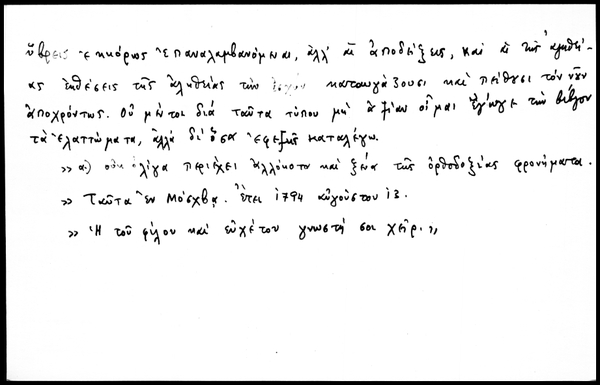 ὕβρεις ἐκκόρως ἐπαναλαμβανόμεναι, ἀλλ' αἱ ἀποδείξεις, καὶ αἱ τῆς ἀληθεί-
ας ἐκθέσεις τῆς ἀληθείας τὴν καταυγάζουσι καὶ πείθουσι τὸν νοῦν
ἀποχρόντως. Οὐ μέντοι διὰ ταῦτα τύπου μὴ ἀξίαν οἶμαι ἔγωγε τὴν βίβλον
τὰ ἐλαττώματα, ἀλλὰ δι' ὅσα ἐφεξῆς καταλέγω.
» α) οὐκ ὀλίγα περιέχει ἀλλόκοτα καὶ ξένα τῆς ὀρθοδοξίας φρονήματα.
» Ταῦτα ἐν Μόσχβᾳ. Ἔτει 1794 αὐγούστου 13.
» Ἡ τοῦ φίλου καὶ εὐχέτου γνωστή σοι χείρ.»